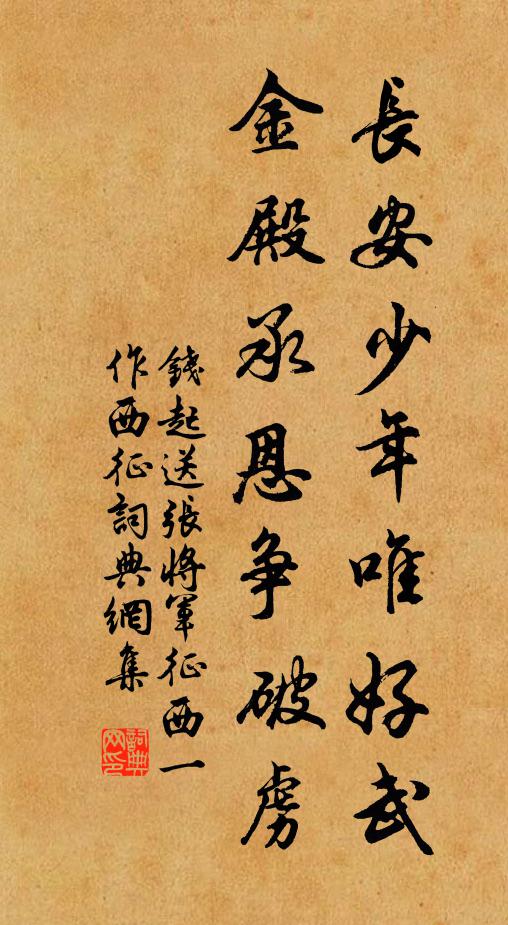 長安少年唯好武
金殿承恩争破虜
錢起送張將軍征西一
作西征詞典網集
詞典
网印